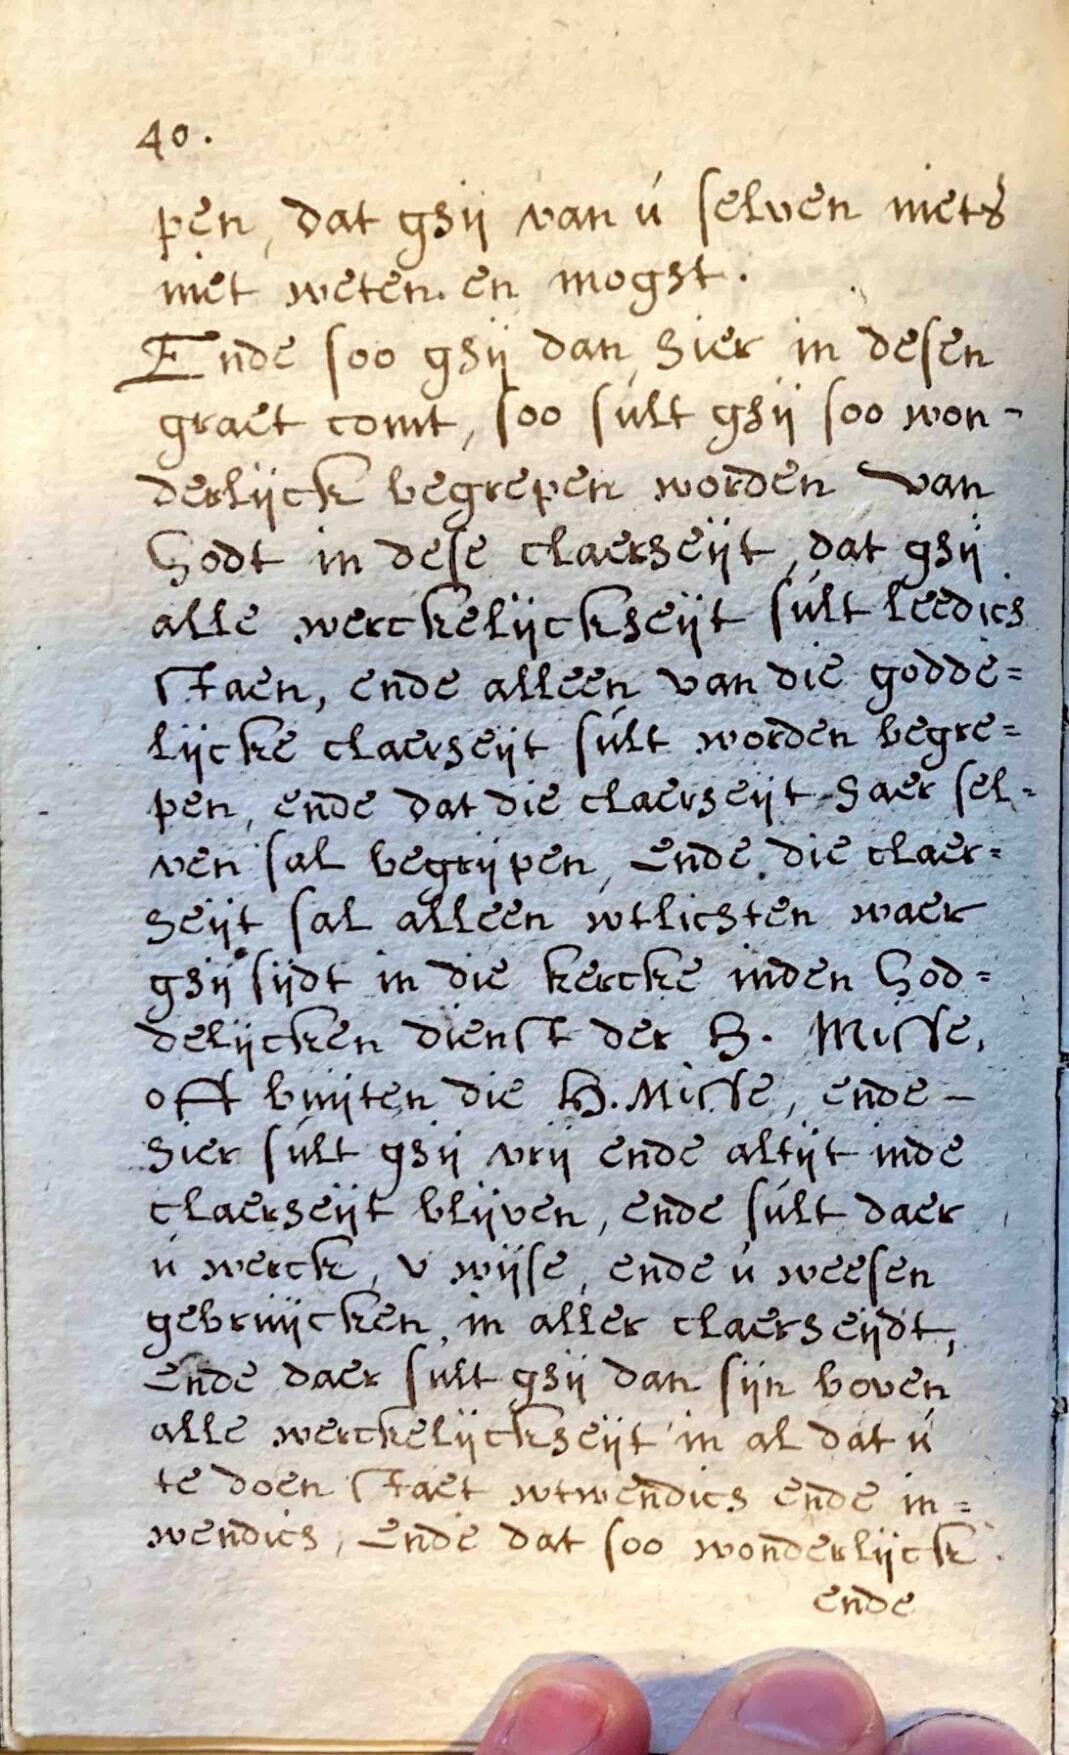 40.
pen, dat ghij van ú selven niets
niet weten en moght.
Ende soo ghij dan hier in desen
graet comt, soo súlt ghij soo won-
derlijck begrepen worden van
Godt in dese claerheijt, dat ghij
alle werckelijckheijt súlt leedich
staen, ende alleen van die godde=
lijcke claerheijt súlt worden begre=
pen, ende dat die claerheijt haer sel=
ven sal begrijpen, ende die claer=
heijt sal alleen wtlichten waer
ghij sijdt in die kercke inden God=
delijcken dienst der H. Misse,
oft buijten die H. Misse, ende -
hier súlt ghij vrij ende altijt inde
claerheijt blijven, ende súlt daer
ú werck, v wijse, ende ú weesen
gebruijcken, in aller claerheijdt,
ende daer súlt ghij dan sijn boven
alle werckelijckheijt in al dat ú
te doen staet wtwendich ende in=
wendich, ende dat soo wonderlijck
ende